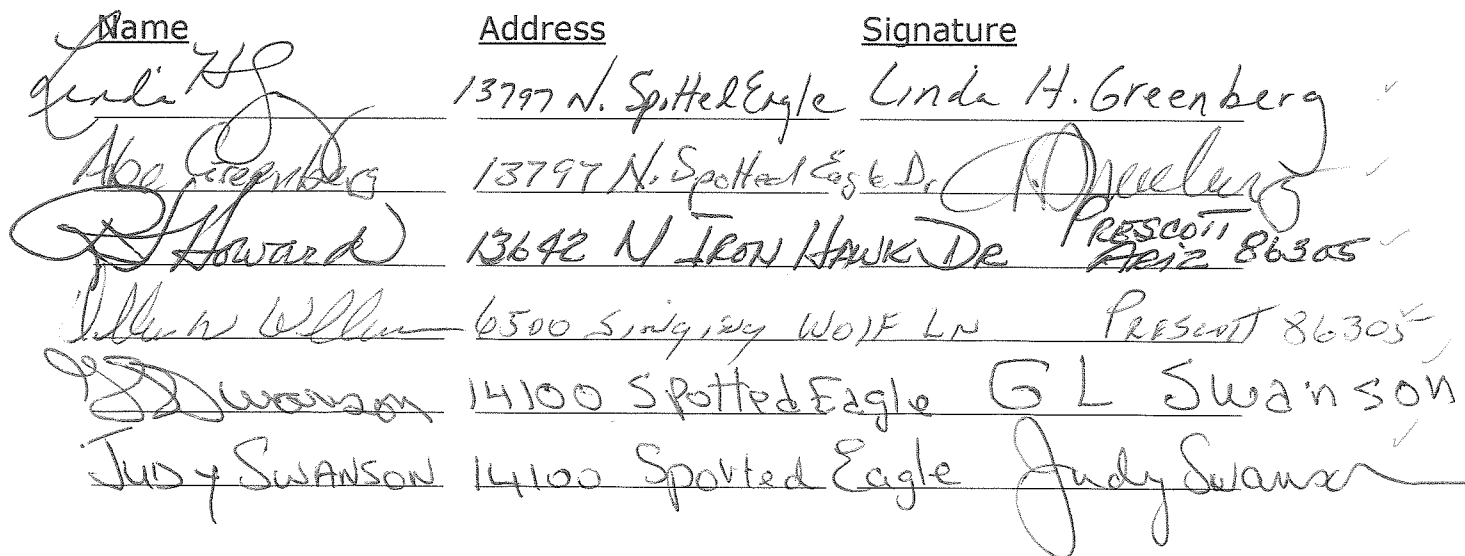 Name Address Signature
Linda H G 13797 N. Spotted Eagle Linda H. Greenberg
Abe Greenberg 13797 N. Spotted Eagle Dr A Greenberg
Howard 13642 N IRON HAWK DR PRESCOTT
ARIZ 86305
6500 Singing WOLF LN PRESCOTT 86305
G L Swanson 14100 Spotted Eagle G L Swanson
JUDY SWANSON 14100 Spotted Eagle Judy Swanson